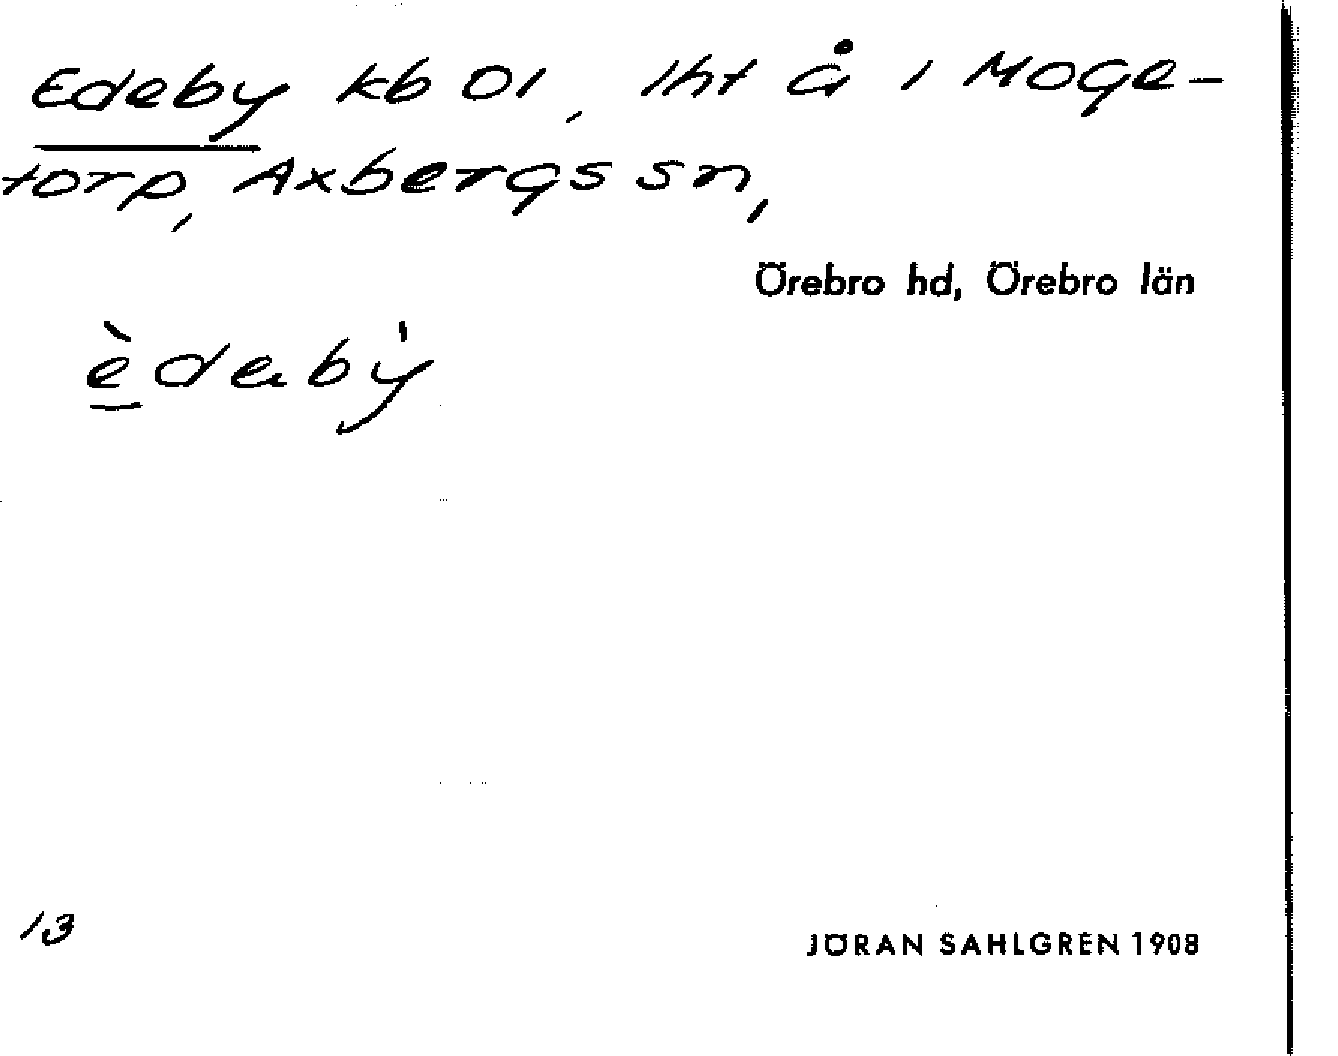 Edeby kb Ol, lht å i Moge-
torp, Axbergs sn,
Örebro hd, Örebro län
èdebẏ
13
JÖRAN SAHLGREN 1908